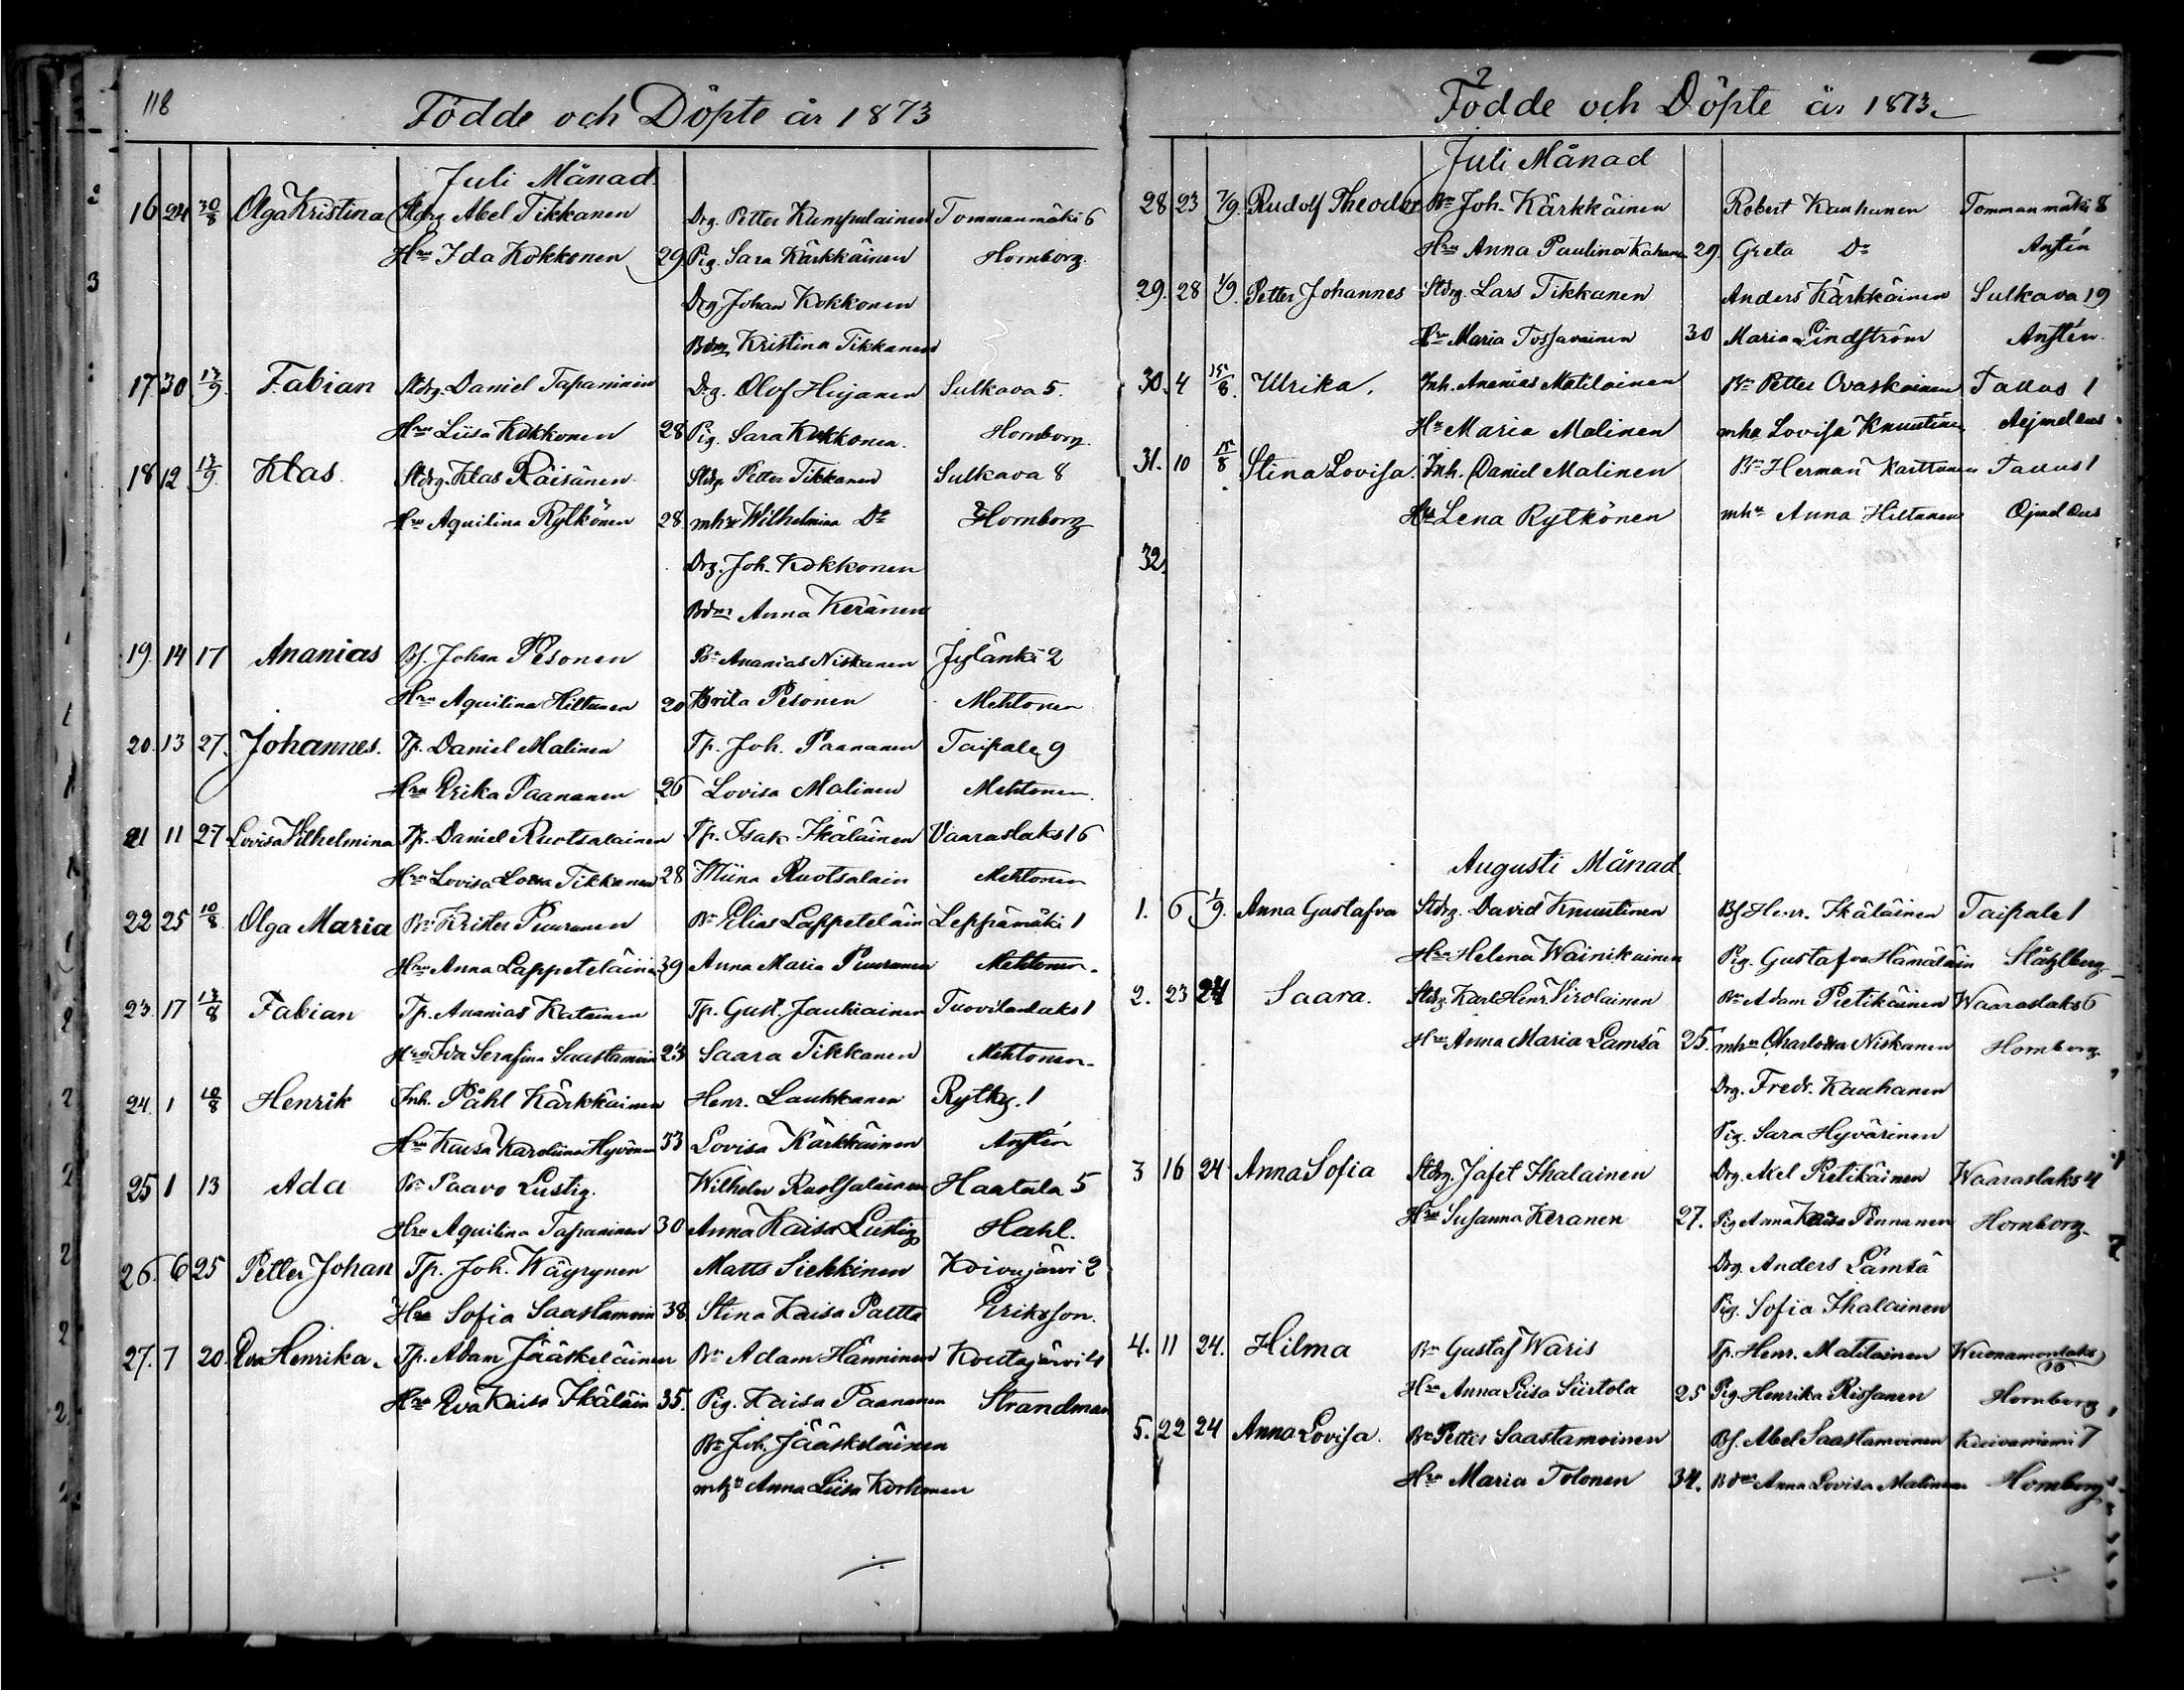 118
Födde och Döpte år 1873
Juli Månad
16 24 30/8 Olga Kristina Stdrg Abel Tikkanen Drg. Petter Kumpulainen Tommanmäki 6
Hru Ida Kokkonen 29 Pig. Sara Kärkkäinen Hornborg.
Drg Johan Kokkonen
Bdm Kristina Tikkanen
17 30 13/9 Fabian Stdrg. Daniel Tapaninen Drg. Olof Hujanen Sulkava 5.
Hru Liisa Kokkonen 28 Pig. Sara Kokkonen. Hornborg.
18 12 13/9 Klas. Stdrg. Klas Räisänen Stdrg. Petter Tikkanen Sulkava 8
Hru Aquilina Rytkönen 28 mhu Wilhelmina Do Hornborg
Drg. Joh. Kokkonen
Bdm Anna Keränen
19. 14 17 Ananias Bf. Johan Pesonen Bn Ananias Niskanen Jylänki 2
Hru Aquilina Hiltunen 20 Brita Pesonen Mehtonen
20. 13 27. Johannes. Tp. Daniel Malinen Tp. Joh. Paananen Taipale 9
Hru Erika Paananen 26 Lovisa Malinen Mehtonen.
21 11 27 Lovisa Vilhelmina Tp. Daniel Ruotsalainen Tp. Isak Ikäläinen Vaaraslaks 16
Hru Lovisa Tikkanen 28 Miina Ruotsalain Mehtonen
22 25 10/8 Olga Maria Bn Krister Puuronen Bn Elias Lappeteläin Leppämäki 1
Hru Anna Lappeteläin 39 Anna Maria Puuronen Mehtonen.
23. 17 13/8 Fabian Tp. Ananias Katainen Tp. Gust. Jauhiainen Tuovilanlaks 1
Hru Ida Serafina Saastamoin 23 Saara Tikkanen Mehtonen.
24. 1 10/8 Henrik Inh. Påhl Kärkkäinen Henr. Laukkanen Rytky. 1
Hru Kaisa Karoliina Hyvönen 33 Lovisa Kärkkäinen Anstén
25 1 13 Ada Bn Paavo Lustig. Wilhelm Ruotsalainen Haatala 5
Hru Aquilina Tapaninen 30 Anna Kaisa Lustig Hahl.
26. 6 25 Petter Johan Tp. Joh. Wäyrynen Matts Siekkinen Koivujärvi 2
Hru Sofia Saastamoin 38 Stina Kaisa Paltta Eriksson.
27. 7 20. Eva Henrika. Tp. Adam Jääskeläinen Bn Adam Hänninen Koutajärvi 4
Hru Eva Kaisa Ikäläin 35. Pig. Kaisa Paananen Strandman
Bn Joh. Jääskeläinen
mhu Anna Liisa Korhonen
2
Födde och Döpte år 1873.
Juli Månad
28 23 7/9. Rudolf Theodor Bn Joh. Kärkkäinen Robert Kauhanen Tommanmäki 8
Hru Anna Paulina 29 Greta Do Anstén
29. 28 1/9. Petter Johannes Stdrg. Lars Tikkanen Anders Kärkkäinen Sulkava 19
Hru Maria Tossavainen 30 Maria Lindström Anstén.
30. 4 15/8. Ulrika. Inh. Ananias Matilainen Bn Petter Ovaskainen Tallus 1
Hu Maria Malinen mhu Lovisa Knuutinen
31. 10 15/8 Stina Lovisa. Inh. Daniel Malinen Bn Herman Karttunen Tallus 1
Hu Lena Rytkönen mhu Anna Hiltunen
32.
Augusti Månad
1. 6 1/9. Anna Gustafva Stdrg. David Knuutinen Bf Henr. Ikäläinen Taipale 1
Hru Helena Wainikainen Pig. Gustafva Hämäläin Ståhlberg
2. 23 24 Saara. Stdrg. Karl Henr Virolainen Bn Adam Pietikäinen Waaraslaks 6
Hru Anna Maria Lämsä 25. mhu Charlotta Niskanen Hornborg.
Drg. Fredr. Kauhanen
Pig. Sara Hyvärinen
3 16 24 Anna Sofia Stdrg. Jafet Ihalainen Drg. Akel Pietikäinen Waaraslaks 4
Hru Susanna Keranen 27. Pig Anna Kaisa Pennanen Hornborg.
Drg. Anders Lämsä
Pig. Sofia Ihalainen
4. 11 24. Hilma Bn Gustaf Waris Tp. Henr. Matilainen 16
Hru Anna Liisa Siirtola 25 Pig. Henrika Rissanen Hornborg
5. 22 24 Anna Lovisa. Bn Petter Saastamoinen Bf. Abel Saastamoinen Kuivaniemi 7
Hru Maria Tolonen 34. Bdm Anna Lovisa Malinen Hornborg